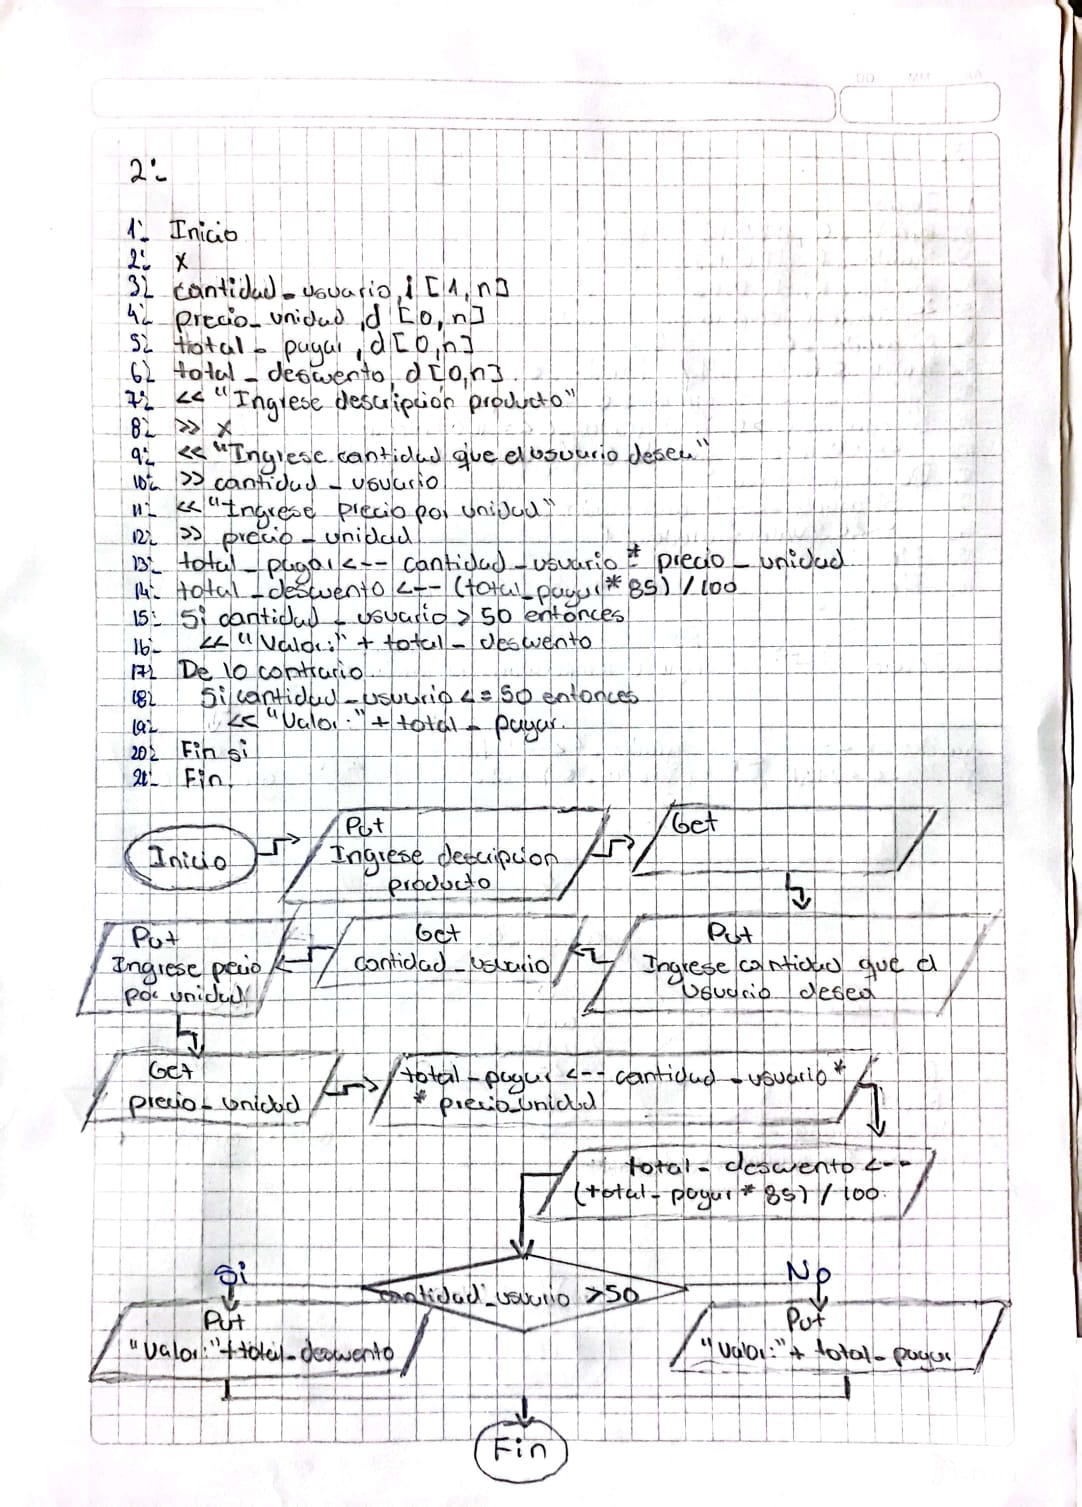 DD MM AA
2:-
1:- Inicio
2:- x
3:- cantidad_usuario, i [1,n]
4:- precio_unidad, d [0,n]
5:- total_pagar, d[0,n]
6:- total_descuento, d[0,n]
7:- << "Ingrese descripción producto"
8:- >> x
9:- << "Ingrese cantidad que el usuario desea"
10:- >> cantidad_usuario
11:- << "Ingrese precio por unidad"
12:- >> precio_unidad
13:- total_pagar <-- cantidad_usuario * precio_unidad
14:- total_descuento <-- (total_pagar * 85) / 100
15:- Si cantidad_usuario > 50 entonces
16:- << "Valor:" + total_descuento
17:- De lo contrario
18:- Si cantidad_usuario <= 50 entonces
19:- << "Valor:" + total_pagar.
20:- Fin si
21:- Fin.
Inicio
Put
Ingrese descripcion
producto
Get
Put
Ingrese cantidad que el
usuario desea
Get
cantidad_usuario
Put
Ingrese pecio
por unidad
Get
precio_unidad
total_pagar <-- cantidad_usuario *
* precio_unidad
total_descuento <--
(total_pagar * 85) / 100.
cantidad_usuario >50
Si
No
Put
"Valor:"+total_descuento
Put
"Valor:"+ total_pagar
Fin